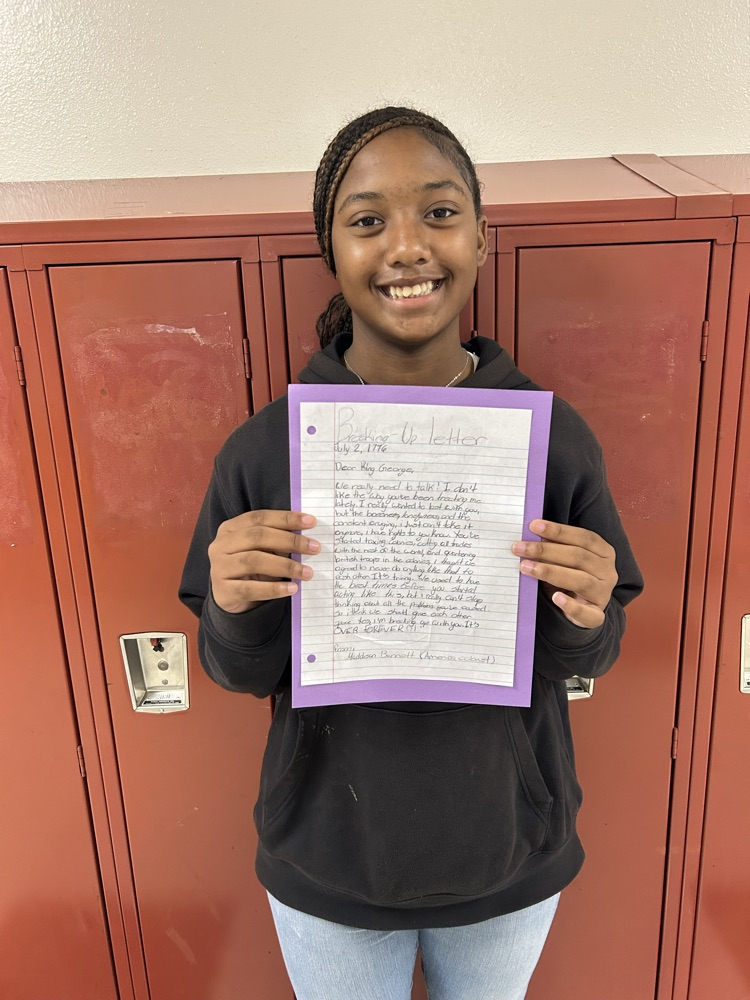 Breaking-Up letter
July 2, 1776
Dear King George,
We really need to talk! I don't
like the way you've been treating me
lately. I really wanted to last with you,
but the and the
constant arguing, i just can't take it
anymore, i have rights to you know. You've
started taxing colonies, cutting off trades
with the rest of the world, and quartering
british troops in the colonies. i thought we
agreed to never do anything like that to
each other. It's tiring. We used to have
the best times before you started
acting like this, but i really can't stop
thinking about all the problems you've caused
so i think we should give each other
space. Yes, i'm breaking up with you. It's
OVER FOREVER!!!
From,
Bennett (American Colonist)